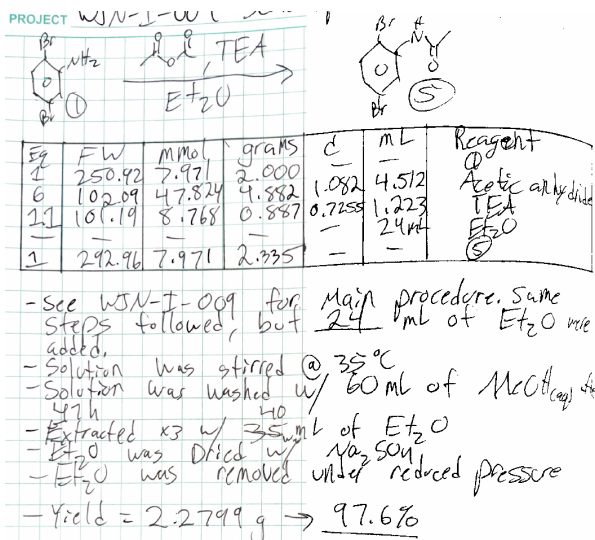 PROJECT WJN-I-001
Br NH2 O O O , TEA Br H N O
Et2O
Br ① Br ⑤
Eq FW mmol grams d mL Reagent
1 250.92 7.971 2.000 — — ①
6 102.09 47.824 4.882 1.082 4.512 Acetic anhydride
1.1 101.19 8.768 0.887 0.7255 1.223 TEA
— — — — — 24mL Et2O
1 292.96 7.971 2.335 ⑤
- See WJN-I-009 for main procedure. Same
steps followed, but 24 mL of Et2O were
added.
- Solution was stirred @ 35°C
- Solution was washed w/ 60 mL of MeOH(aq)
47h 40
- Extracted x3 w/ 35 mL of Et2O
- Et2O was Dried w/ Na2SO4
- Et2O was removed under reduced pressure
- Yield = 2.2799 g → 97.6%